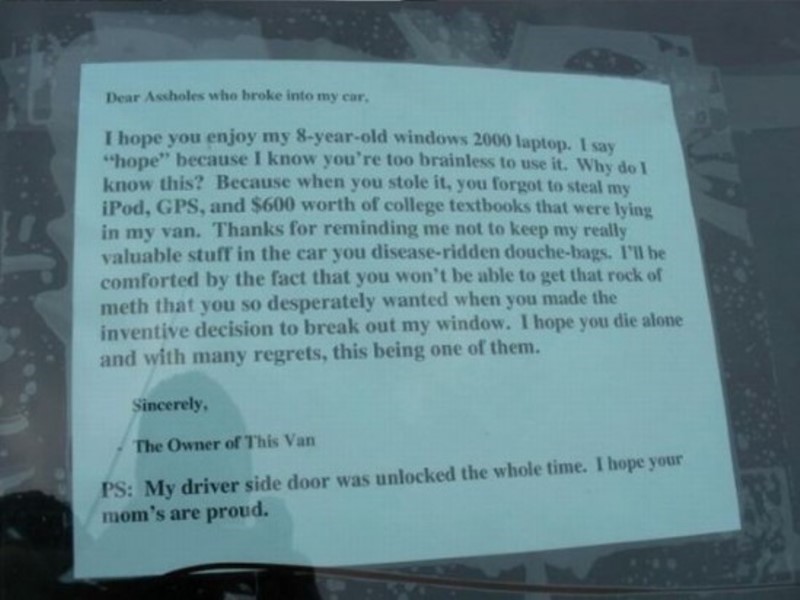 Dear Assholes who broke into my car,
I hope you enjoy my 8-year-old windows 2000 laptop. I say
“hope” because I know you’re too brainless to use it. Why do I
know this? Because when you stole it, you forgot to steal my
iPod, GPS, and $600 worth of college textbooks that were lying
in my van. Thanks for reminding me not to keep my really
valuable stuff in the car you disease-ridden douche-bags. I’ll be
comforted by the fact that you won’t be able to get that rock of
meth that you so desperately wanted when you made the
inventive decision to break out my window. I hope you die alone
and with many regrets, this being one of them.
Sincerely,
The Owner of This Van
PS: My driver side door was unlocked the whole time. I hope your
mom’s are proud.